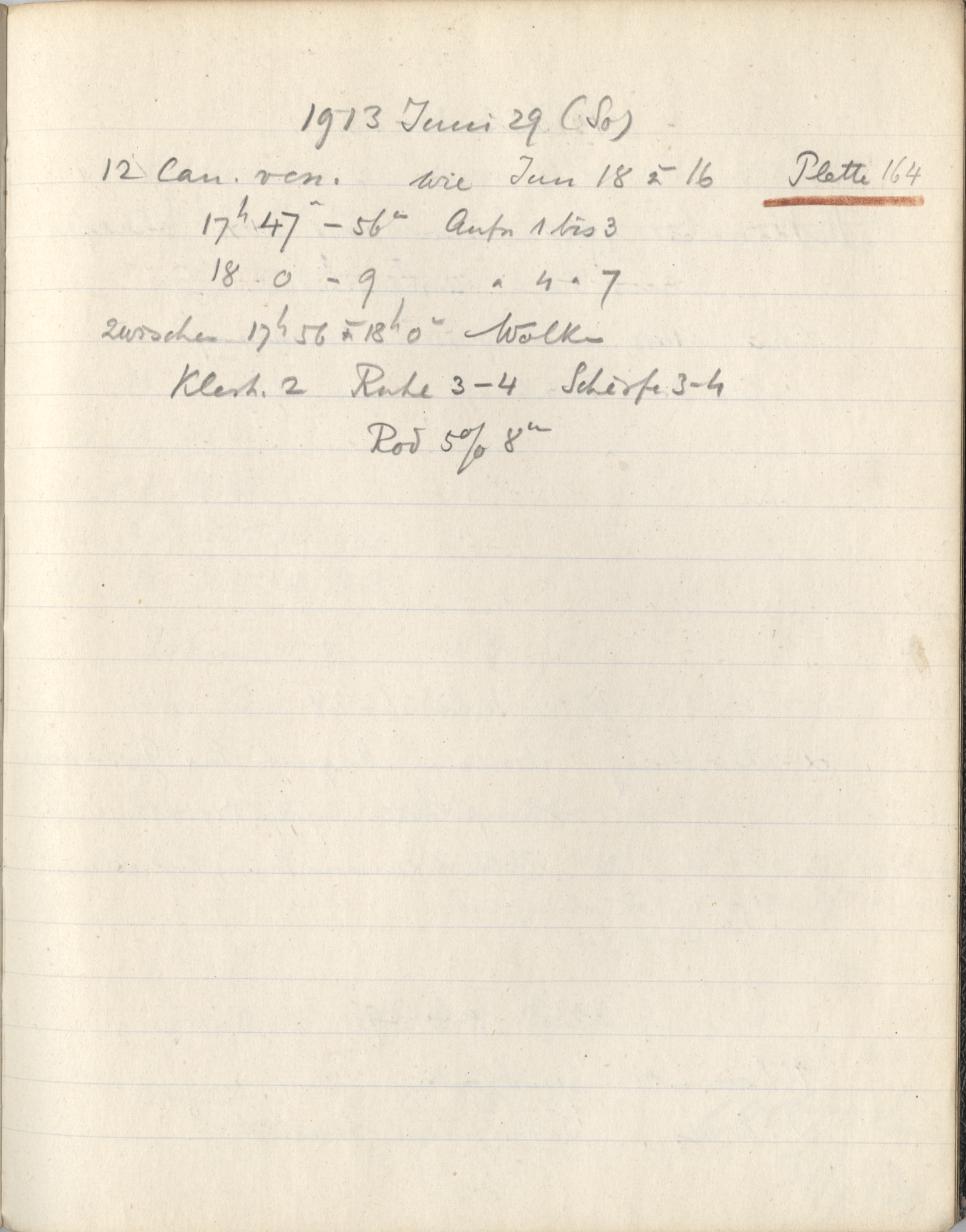 1913 Juni 29 (So)
12 Can. ven. wie Jun 18 u 16 Platte 164
17h 47m – 56m Aufn 1 bis 3
18 0 – 9 " 4 " 7
zwischen 17h 56 u 18h 0m Wolken
Klarh. 2 Ruhe 3–4 Schärfe 3–4
Rod 5% 8m